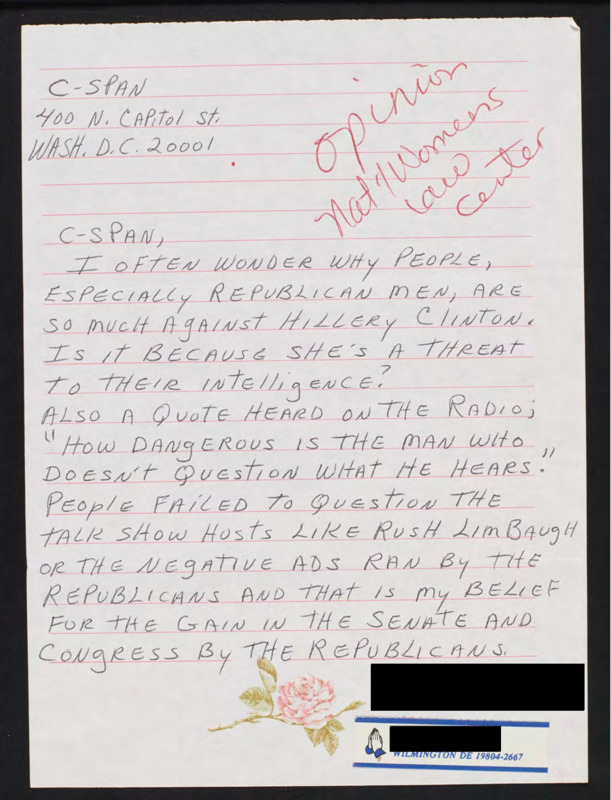 C-SPAN
400 N. CAPITOL St.
WASH. D.C. 20001
Opinion
Nat'l Womens
Law
Center
C-SPAN,
I OFTEN WONDER WHY PEOPLE,
ESPECIALLY REPUBLICAN MEN, ARE
SO MUCH AGAINST HILLERY CLINTON.
IS IT BECAUSE SHE'S A THREAT
TO THEIR INTELLIGENCE?
ALSO A QUOTE HEARD ON THE RADIO;
"HOW DANGEROUS IS THE MAN WHO
DOESN'T QUESTION WHAT HE HEARS."
PEOPLE FAILED TO QUESTION THE
TALK SHOW HOSTS LIKE RUSH LIMBAUGH
OR THE NEGATIVE ADS RAN BY THE
REPUBLICANS AND THAT IS MY BELIEF
FOR THE GAIN IN THE SENATE AND
CONGRESS BY THE REPUBLICANS.
WILMINGTON DE 19804-2667